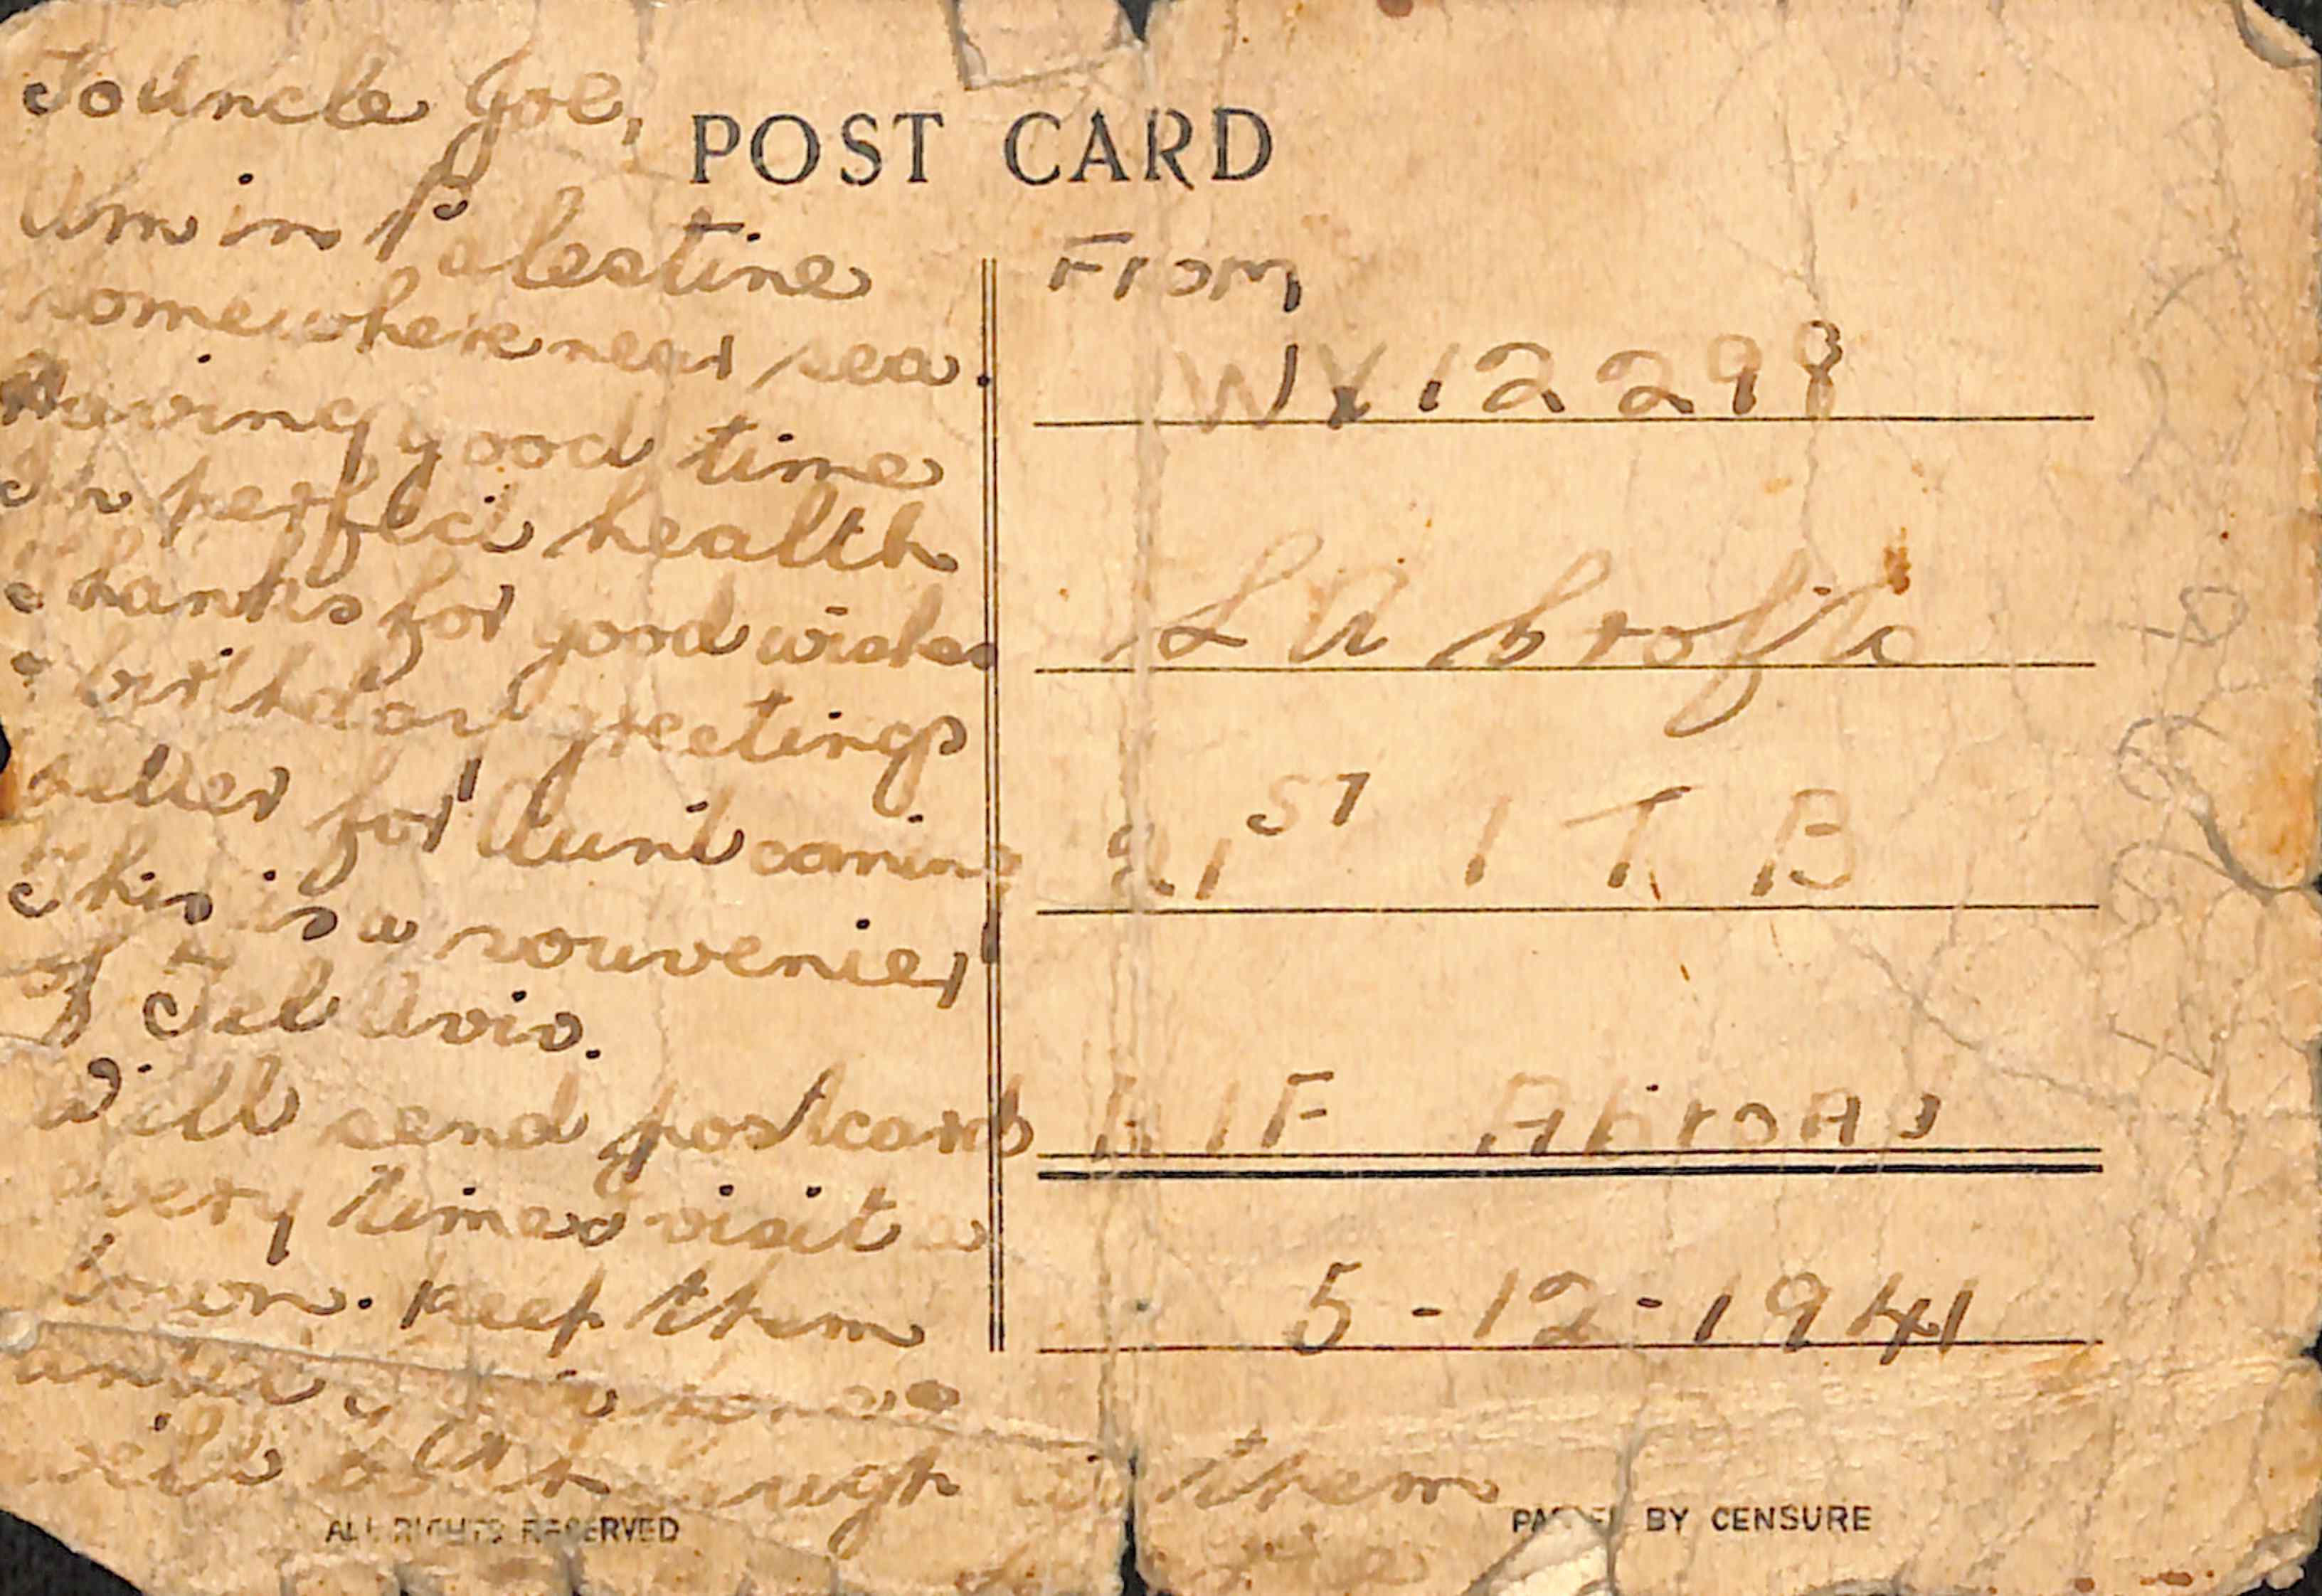 To Uncle Joe,
POST CARD
Am in Palestine
somewhere near sea.
Having good time
In perfect health
Thanks for good wishes
& birthday greetings
letter for Aunt coming
This is a souvenier
of Tel Aviv.
Will send postcard
every time visit a
town. Keep them
them
From
WX12298
L A
21ST I T B
A I F Abroad
5-12-1941
ALL RIGHTS RESERVED
PASSED BY CENSURE